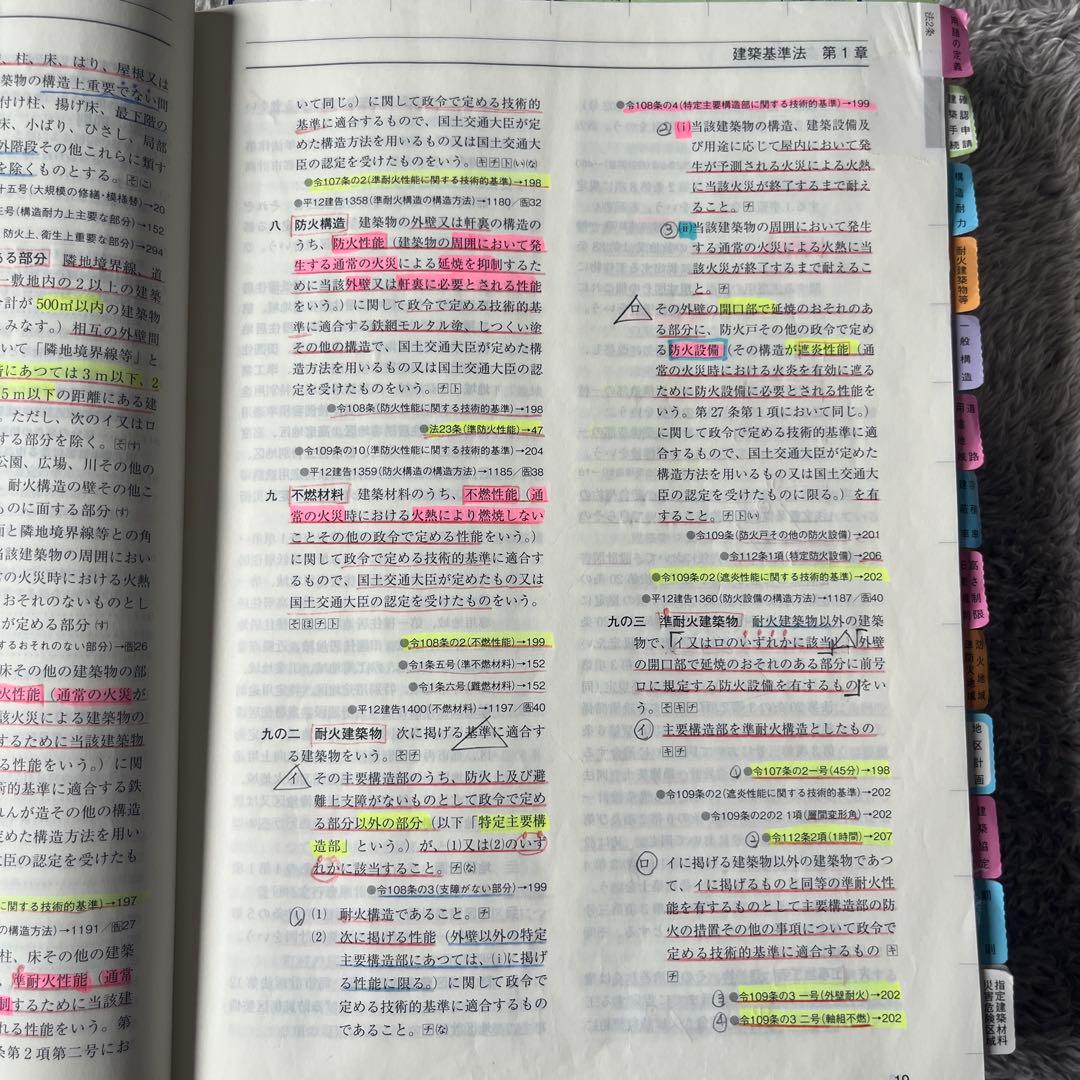 、柱、床、はり、屋根又は
築物の構造上重要でない間
付け柱、揚げ床、最下階の
床、小ばり、ひさし、局部
外階段その他これらに類す
を除くものとする。そ(こ)
十五号(大規模の修繕・模様替)→20
三号(構造耐力上主要な部分)→152
、防火上、衛生上重要な部分)→294
ある部分 隣地境界線、道
一敷地内の2以上の建築
合計が500㎡以内の建築物
とみなす。)相互の外壁間
いて「隣地境界線等」と
階にあつては3m以下、2
5m以下の距離にある建
。ただし、次のイ又はロ
する部分を除く。そ(す)
公園、広場、川その他の
耐火構造の壁その他こ
ものに面する部分(す)
面と隣地境界線等との角
当該建築物の周囲におい
の火災時における火熱
おそれのないものとし
が定める部分(す)
するおそれのない部分)→告26
床その他の建築物の部
火性能(通常の火災が
該火災による建築物の
するために当該建築物
る性能をいう。)に関
術的基準に適合する鉄
れんが造その他の構造
定めた構造方法を用い
大臣の認定を受けたも
に関する技術的基準)→197
の構造方法)→1191/告27
柱、床その他の建築
、準耐火性能(通常
制するために当該建
れる性能をいう。第
条第2項第二号にお
建築基準法 第1章
いて同じ。)に関して政令で定める技術的
基準に適合するもので、国土交通大臣が定
めた構造方法を用いるもの又は国土交通大
臣の認定を受けたものをいう。キチト(い)(な)
●令107条の2(準耐火性能に関する技術的基準)→198
●平12建告1358(準耐火構造の構造方法)→1180/告32
八 防火構造 建築物の外壁又は軒裏の構造の
うち、防火性能(建築物の周囲において発
生する通常の火災による延焼を抑制するた
めに当該外壁又は軒裏に必要とされる性能
をいう。)に関して政令で定める技術的基
準に適合する鉄網モルタル塗、しつくい塗
その他の構造で、国土交通大臣が定めた構
造方法を用いるもの又は国土交通大臣の認
定を受けたものをいう。チト
●令108条(防火性能に関する技術的基準)→198
●法23条(準防火性能)→47
●令109条の10(準防火性能に関する技術的基準)→204
●平12建告1359(防火構造の構造方法)→1185/告38
九 不燃材料 建築材料のうち、不燃性能(通
常の火災時における火熱により燃焼しない
ことその他の政令で定める性能をいう。)
に関して政令で定める技術的基準に適合す
るもので、国土交通大臣が定めたもの又は
国土交通大臣の認定を受けたものをいう。
そほチト
●令108条の2(不燃性能)→199
●令1条五号(準不燃材料)→152
●令1条六号(難燃材料)→152
●平12建告1400(不燃材料)→1197/告40
九の二 耐火建築物 次に掲げる基準に適合す
る建築物をいう。そチ
イ その主要構造部のうち、防火上及び避
難上支障がないものとして政令で定め
る部分以外の部分(以下「特定主要構
造部」という。)が、(1)又は(2)のいず
れかに該当すること。チ(な)
●令108条の3(支障がない部分)→199
① (1) 耐火構造であること。チ
(2) 次に掲げる性能(外壁以外の特定
主要構造部にあつては、(ⅰ)に掲げ
る性能に限る。)に関して政令で
定める技術的基準に適合するもの
であること。チ(な)
●令108条の4(特定主要構造部に関する技術的基準)→199
② (ⅰ) 当該建築物の構造、建築設備及
び用途に応じて屋内において発
生が予測される火災による火熱
に当該火災が終了するまで耐え
ること。チ
③ (ⅱ) 当該建築物の周囲において発生
する通常の火災による火熱に当
該火災が終了するまで耐えるこ
と。チ
ロ その外壁の開口部で延焼のおそれのあ
る部分に、防火戸その他の政令で定め
る防火設備(その構造が遮炎性能(通
常の火災時における火炎を有効に遮る
ために防火設備に必要とされる性能を
いう。第27条第1項において同じ。)
に関して政令で定める技術的基準に適
合するもので、国土交通大臣が定めた
構造方法を用いるもの又は国土交通大
臣の認定を受けたものに限る。)を有
すること。チト(い)
●令109条(防火戸その他の防火設備)→201
●令112条1項(特定防火設備)→206
●令109条の2(遮炎性能に関する技術的基準)→202
●平12建告1360(防火設備の構造方法)→1187/告40
九の三 準耐火建築物 耐火建築物以外の建築
物で、イ又はロのいずれかに該当し、外壁
の開口部で延焼のおそれのある部分に前号
ロに規定する防火設備を有するものをい
う。そキチ
イ 主要構造部を準耐火構造としたもの
キチ
① ●令107条の2一号(45分)→198
●令109条の2(遮炎性能に関する技術的基準)→202
●令109条の2の2 1項(層間変形角)→202
② ●令112条2項(1時間)→207
ロ イに掲げる建築物以外の建築物であつ
て、イに掲げるものと同等の準耐火性
能を有するものとして主要構造部の防
火の措置その他の事項について政令で
定める技術的基準に適合するもの キ
チ
③ ●令109条の3 一号(外壁耐火)→202
④ ●令109条の3 二号(軸組不燃)→202
19
法2条
用語の定義
確認申請
建築手続
構造耐力
耐火建築物等
一般構造
道路
用途地域
高さ制限
防火地域
準防火地域
地区計画
建築協定
指定建築材料
災害危険区域